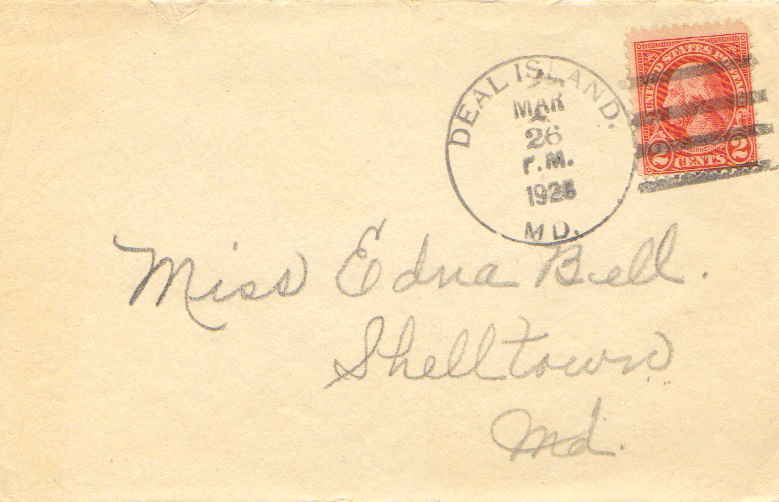 DEAL ISLAND.
MAR
26
P.M.
1925
MD.
UNITED STATES POSTAGE
2 CENTS 2
Miss Edna Bell.
Shelltown
Md.